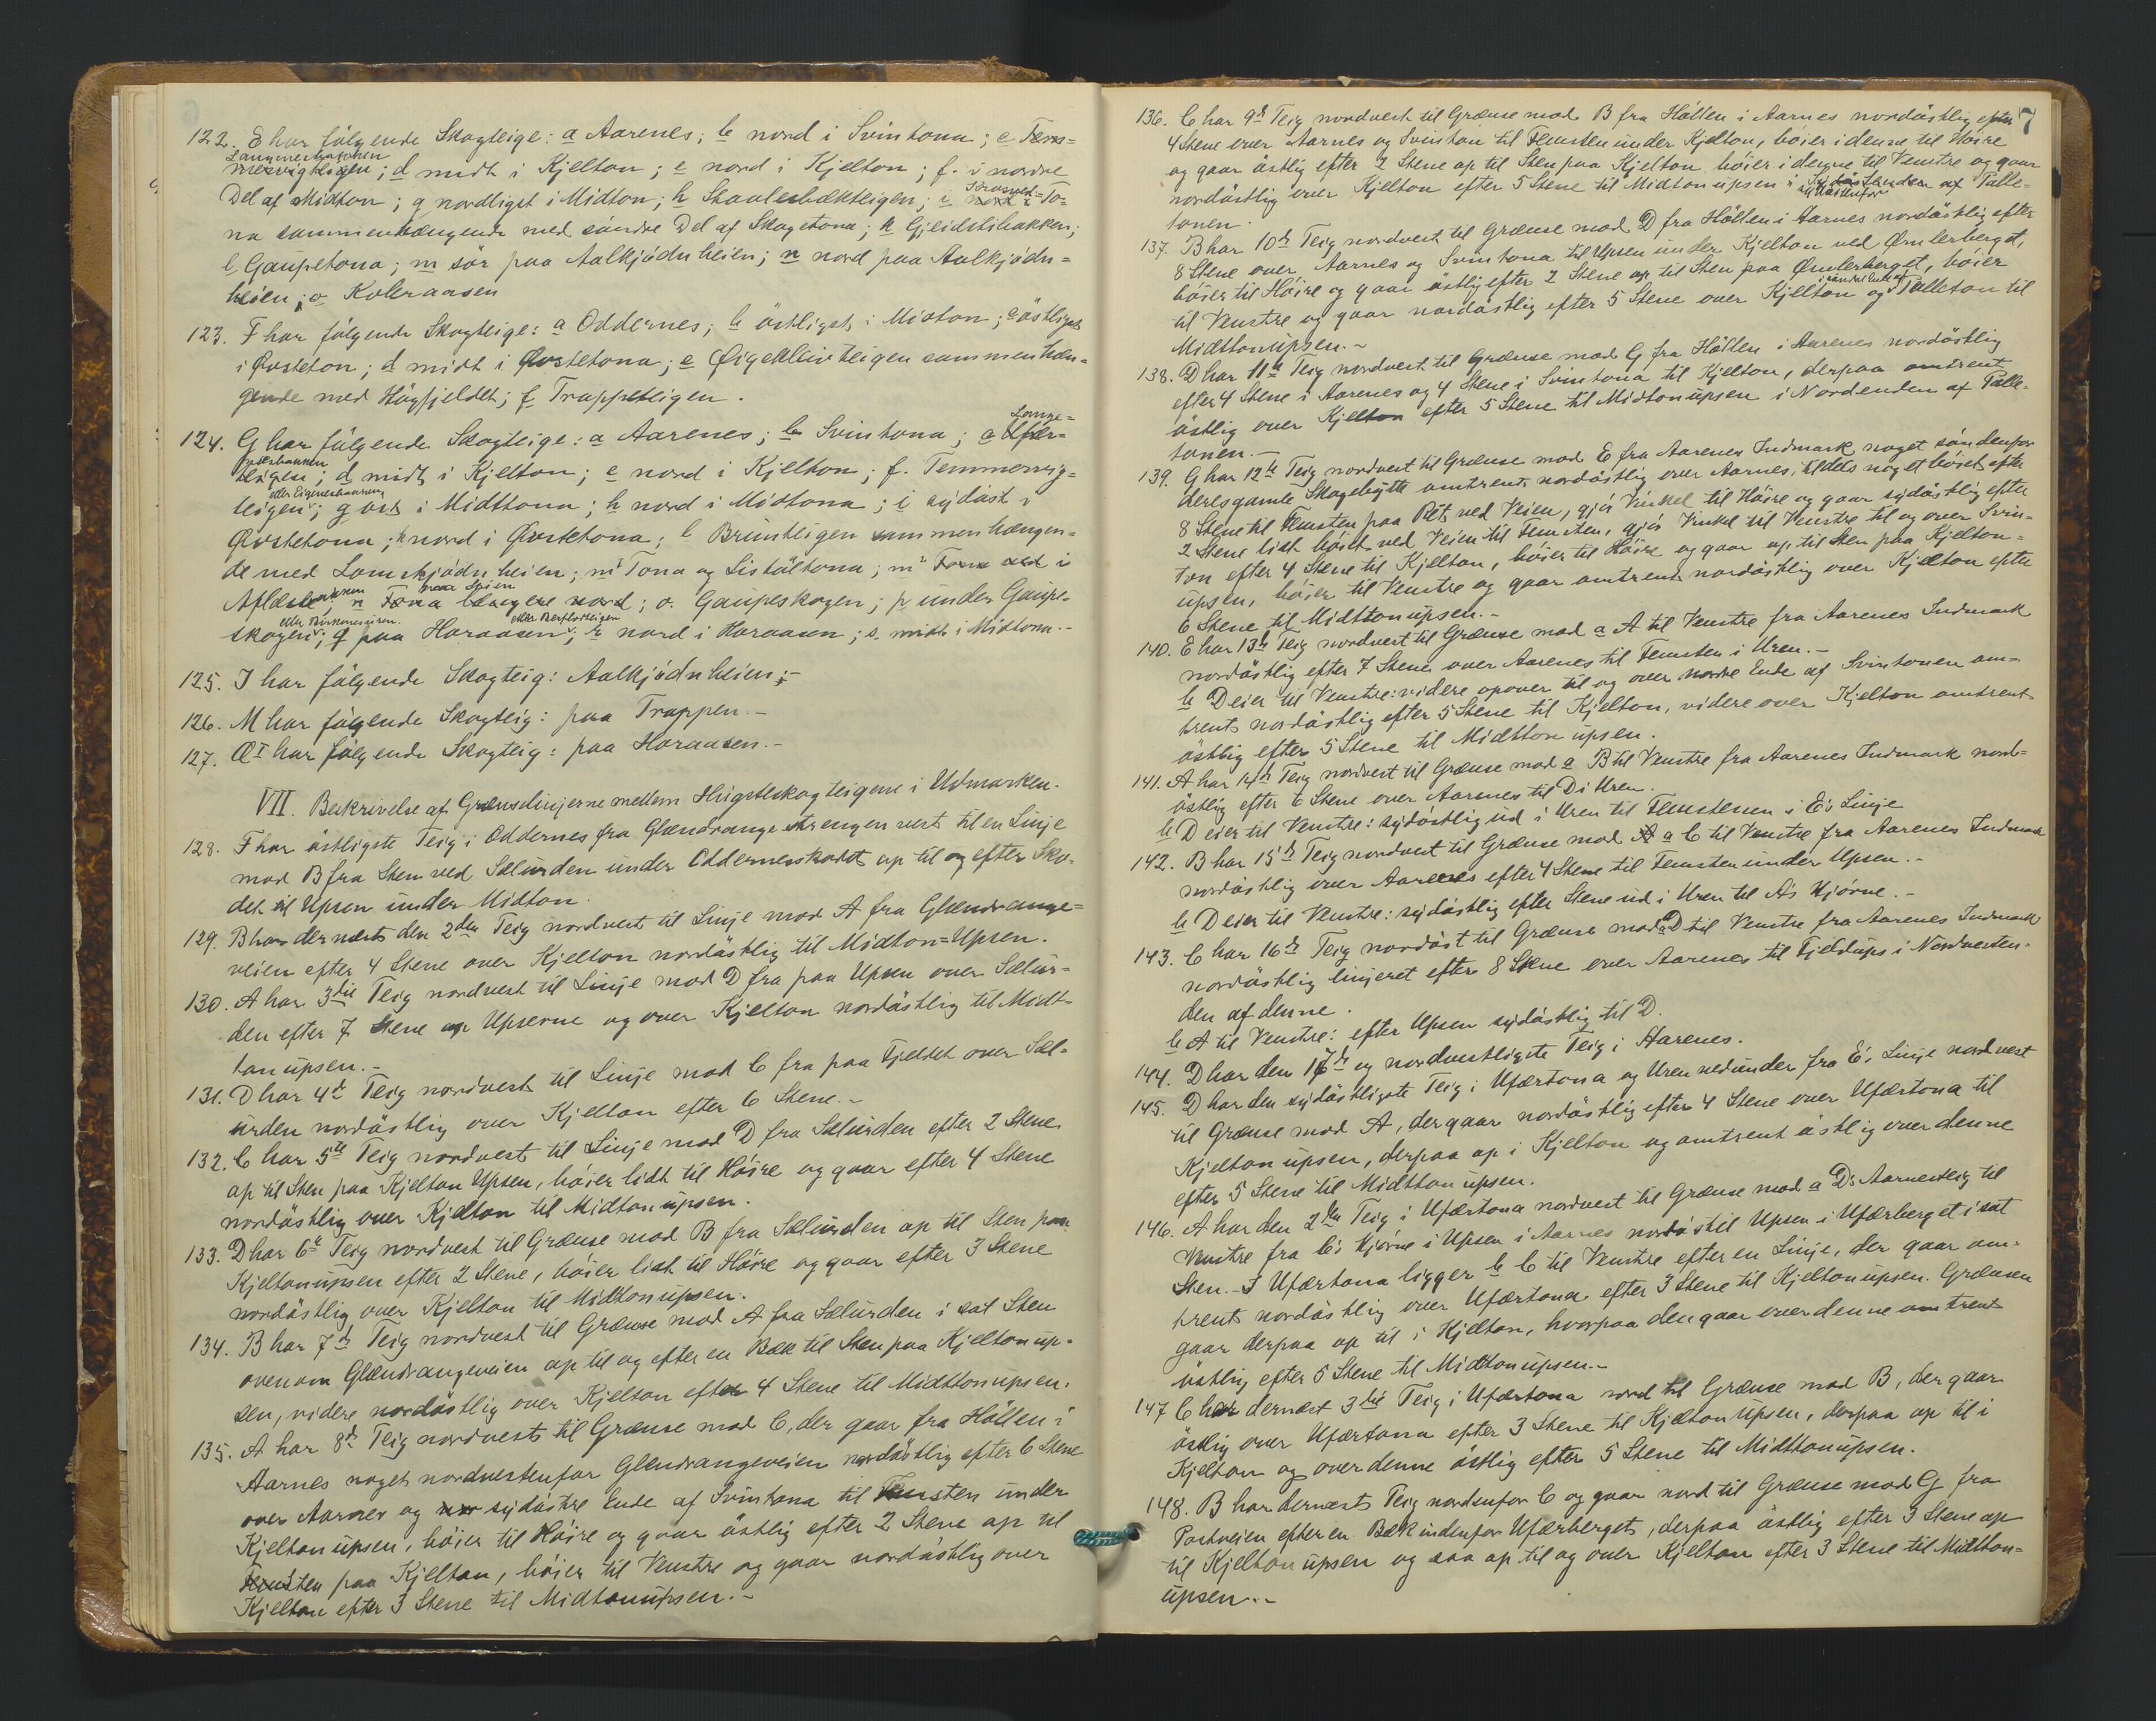 122. E har følgende Skogteige: a Aarenes; b nord i Svintona; c Tem-
Langenesbakken
mervigteigen; d midt i Kjelton; e nord i Kjelton; f. i nordre
Del af Midton; g nordligst i Midton; h Skaalebækteigen; i nord i To-
na sammenhængende med søndre Del af Skogetona; k Gjeidslibakken;
l Gaupetona; m sør paa Aalkjødnheien; n nord paa Aalkjødn=
heien; o Koleraasen
123. F har følgende Skogteige: a Oddernes; b østligst i Midton; c østligst
i Øvsteton; d midt i Øvstetona; e Øigekleivteigen sammenhæn-
gende med Høgfjeldet; f Trappeteigen.
124. G har følgende Skogteige: a Aarenes; b Svintona; c Ufær=
teigen; d midt i Kjelton; e nord i Kjelton; f. Temmervig-
teigen; g øst i Midttona; h nord i Midtona; i sydøst i
Øvstetona; k nord i Øvstetona; l Bruntleigen sammenhængen-
de med Lomskjødnheien; m¹ Tona og Listøltona; m² Tona ved i
Afløste; n Tona længere nord; o. Gaupeskogen; p under Gaupe-
eller Birkemyren.
skogen; q paa Horaasen; r nord i Horaasen; s. midt i Midtona.-
125. I har følgende Skogteig: Aalkjødnheien;-
126. M har følgende Skogteig: paa Trappen.-
127. Æ¹ har følgende Skogteig: paa Horaasen.-
VII. Beskrivelse af Grænselinjerne mellem Hugsteskogteigene i Udmarken.
128. F har østligste Teig i Oddernes fra Glændrange Strengen vest til en Linje
mod B fra Sten ved Sælurden under Oddernesskardet op til og efter Skar-
det til Upsen under Midton.
129. B har dernæst den 2den Teig nordvest til Linje mod A fra Glændrange=
veien efter 4 Stene over Kjelton nordøstlig til Midton=Upsen.
130. A har 3die Teig nordvest til Linje mod D fra paa Upsen over Sælur=
den efter 7 Stene op Upserne og over Kjelton nordøstlig til Midt=
tonupsen.-
131. D har 4de Teig nordvest til Linje mod C fra paa Fjeldet over Sæl-
urden nordøstlig over Kjelton efter 6 Stene.-
132. C har 5te Teig nordvest til Linje mod D fra Sælurden efter 2 Stene
op til Sten paa Kjelton Upsen, bøier lidt til Høire og gaar efter 4 Stene
nordøstlig over Kjelton til Midtonupsen.
133. D har 6te Teig nordvest til Grænse mod B fra Sælurden op til Sten paa
Kjeltonupsen efter 2 Stene, bøier lidt til Høire og gaar efter 3 Stene
nordøstlig over Kjelton til Midttonupsen.
134. B har 7de Teig nordvest til Grænse mod A fra Sælurden i sat Sten
ovenom Glændrangeveien op til og efter en Bæk til Sten paa Kjeltonup-
sen, videre nordøstlig over Kjelton efter 4 Stene til Midttonupsen.
135. A har 8de Teig nordvest til Grænse mod C, der gaar fra Hølen i
Aarnes noget nordvestenfor Glændrangeveien nordøstlig efter 6 Stene
over Aarnes og sydøstre Ende af Svintona til Femsten under
Kjeltonupsen, bøier til Høire og gaar østlig efter 2 Stene op til
Femsten paa Kjelton, bøier til Venstre og gaar nordøstlig over
Kjelton efter 3 Stene til Midtonupsen.-
7
136. C har 9de Teig nordvest til Grænse mod B fra Hølten i Aarnes nordøstlig efter
4 Stene over Aarnes og Svinton til Femsten under Kjelton, bøier i denne til Høire
og gaar østlig efter 2 Stene op til Sten paa Kjelton, bøier i denne til Venstre og gaar
nordøstlig over Kjelton efter 5 Stene til Midtonupsen i Sydøstenden af Tolle-
tonen.
137. B har 10de Teig nordvest til Grænse mod D fra Hølten i Aarnes nordøstlig efter
8 Stene over Aarnes og Svintona til Upsen under Kjelton ved Ømlerberget,
bøier til Høire og gaar østlig efter 2 Stene op til Sten paa Ømlerberget, bøier
til Venstre og gaar nordøstlig efter 5 Stene over Kjelton og i søndre Ende af Tolleton til
Midttonupsen.-
138. D har 11te Teig nordvest til Grænse mod G fra Hølten i Aarenes nordøstlig
efter 4 Stene i Aarenes og 4 Stene i Svintona til Kjelton, derpaa omtrent
østlig over Kjelton efter 5 Stene til Midtonupsen i Nordenden af Tolle-
tonen.-
139. G har 12te Teig nordvest til Grænse mod E fra Aarenes Indmark noget søndenfor
deres gamle Skogebytte omtrent nordøstlig over Aarnes, tildels noget bøiet efter
8 Stene til Femsten paa Ret ved Veien, gjør Vinkel til Høire og gaar sydøstlig efter
2 Stene lidt bøiet ved Veien til Femsten, gjør Vinkel til Venstre til og over Svin-
ton efter 4 Stene til Kjelton, bøier til Høire og gaar op til Sten paa Kjelton=
upsen, bøier til Venstre og gaar omtrent nordøstlig over Kjelton efter
6 Stene til Midttonupsen.-
140. E har 13de Teig nordvest til Grænse mod a A til Venstre fra Aarenes Indmark
nordøstlig efter 7 Stene over Aarenes til Femsten i Uren.-
b D eier til Venstre: videre opover til og over nordre Ende af Svintonen om-
trent nordøstlig efter 5 Stene til Kjelton, videre over Kjelton omtrent
østlig efter 5 Stene til Midttonupsen.
141. A har 14de Teig nordvest til Grænse mod a B til Venstre fra Aarenes Indmark nord=
østlig efter 6 Stene over Aarenes til D i Uren.
b D eier til Venstre: sydøstlig ud i Uren til Femstenen i E's Linje
142. B har 15de Teig nordvest til Grænse mod a C til Venstre fra Aarenes Indmark
nordøstlig over Aarenes efter 4 Stene til Femsten under Upsen.-
b D eier til Venstre: sydøstlig efter Stene ud i Uren til A's Hjørne.-
143. C har 16de Teig nordøst til Grænse mod a D til Venstre fra Aarenes Indmark
nordøstlig linjeret efter 8 Stene over Aarenes til Fjeldups i Nordvesten-
den af denne.
b A til Venstre: efter Upsen sydøstlig til D.
144. D har den 17de og nordvestligste Teig i Aarenes.
145. D har den sydøstligste Teig i Ufærtona og Uren nedunder fra E's Linje nordvest
til Grænse mod A, der gaar nordøstlig efter 4 Stene over Ufærtona til
Kjeltonupsen, derpaa op i Kjelton og omtrent østlig over denne
efter 5 Stene til Midttonupsen.
146. A har den 2den Teig i Ufærtona nordvest til Grænse mod a D's Aarnesteig til
Venstre fra C's Hjørne i Upsen i Aarnes nordøst til Upsen i Ufærberget i sat
Sten.- I Ufærtona ligger b C til Venstre efter en Linje, der gaar om-
trent nordøstlig over Ufærtona efter 3 Stene til Kjeltonupsen. Grænsen
gaar derpaa op til i Kjelton, hvorpaa den gaar over denne omtrent
østlig efter 5 Stene til Midttonupsen.-
147 C har dernæst 3die Teig i Ufærtona nord til Grænse mod B, der gaar
østlig over Ufærtona efter 3 Stene til Kjeltonupsen, derpaa op til i
Kjelton og over denne østlig efter 5 Stene til Midttonupsen.
148. B har dernæst Teig nordenfor C og gaar nord til Grænse mod G fra
Postveien efter en Bæk indenfor Ufærberget, derpaa østlig efter 3 Stene op
til Kjeltonupsen og saa op til og over Kjelton efter 3 Stene til Midtton=
upsen.-